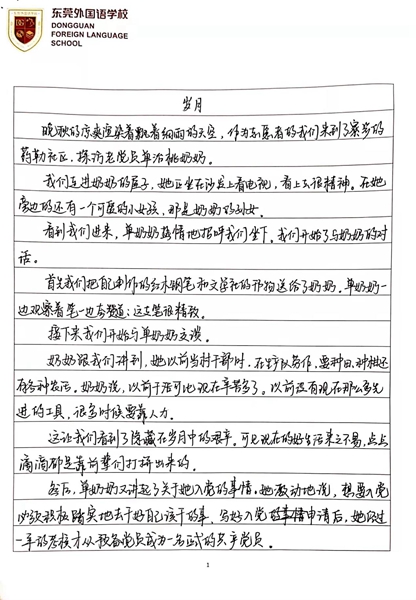 东莞外国语学校
DONGGUAN
FOREIGN LANGUAGE
SCHOOL
岁月
晚秋的凉爽渲染着飘着细雨的天空，作为志愿者的我们来到了寮步的
药勒社区，探访老党员单治桃奶奶。
我们走进奶奶的屋子，她正坐在沙发上看电视，看上去很精神。在她
旁边的还有一个可爱的小女孩，那是奶奶的孙女。
看到我们进来，单奶奶热情地招呼我们坐下。我们开始了与奶奶的对
话。
首先我们把自制作的红木钢笔和文学社的刊物送给了奶奶。单奶奶一
边观察着笔一边夸赞道：这支笔很精致。
接下来我们开始与单奶奶交谈。
奶奶跟我们讲到，她以前当村干部时，在生产队务作，要种田、种柑还
有各种农活。奶奶说，以前干活可比现在辛苦多了。以前没有现在那么多先
进的工具，很多时候要靠人力。
这让我们看到了隐藏在岁月中的艰辛。可见现在的好生活来之不易，点点
滴滴都是靠前辈们打拼出来的。
然后，单奶奶又讲起了关于她入党的事情。她激动地说，想要入党
必须积极踏实地去干好自己该干的事。写好入党申请后，她经过
一年的考核才从预备党员成为一名正式的共产党员。
1